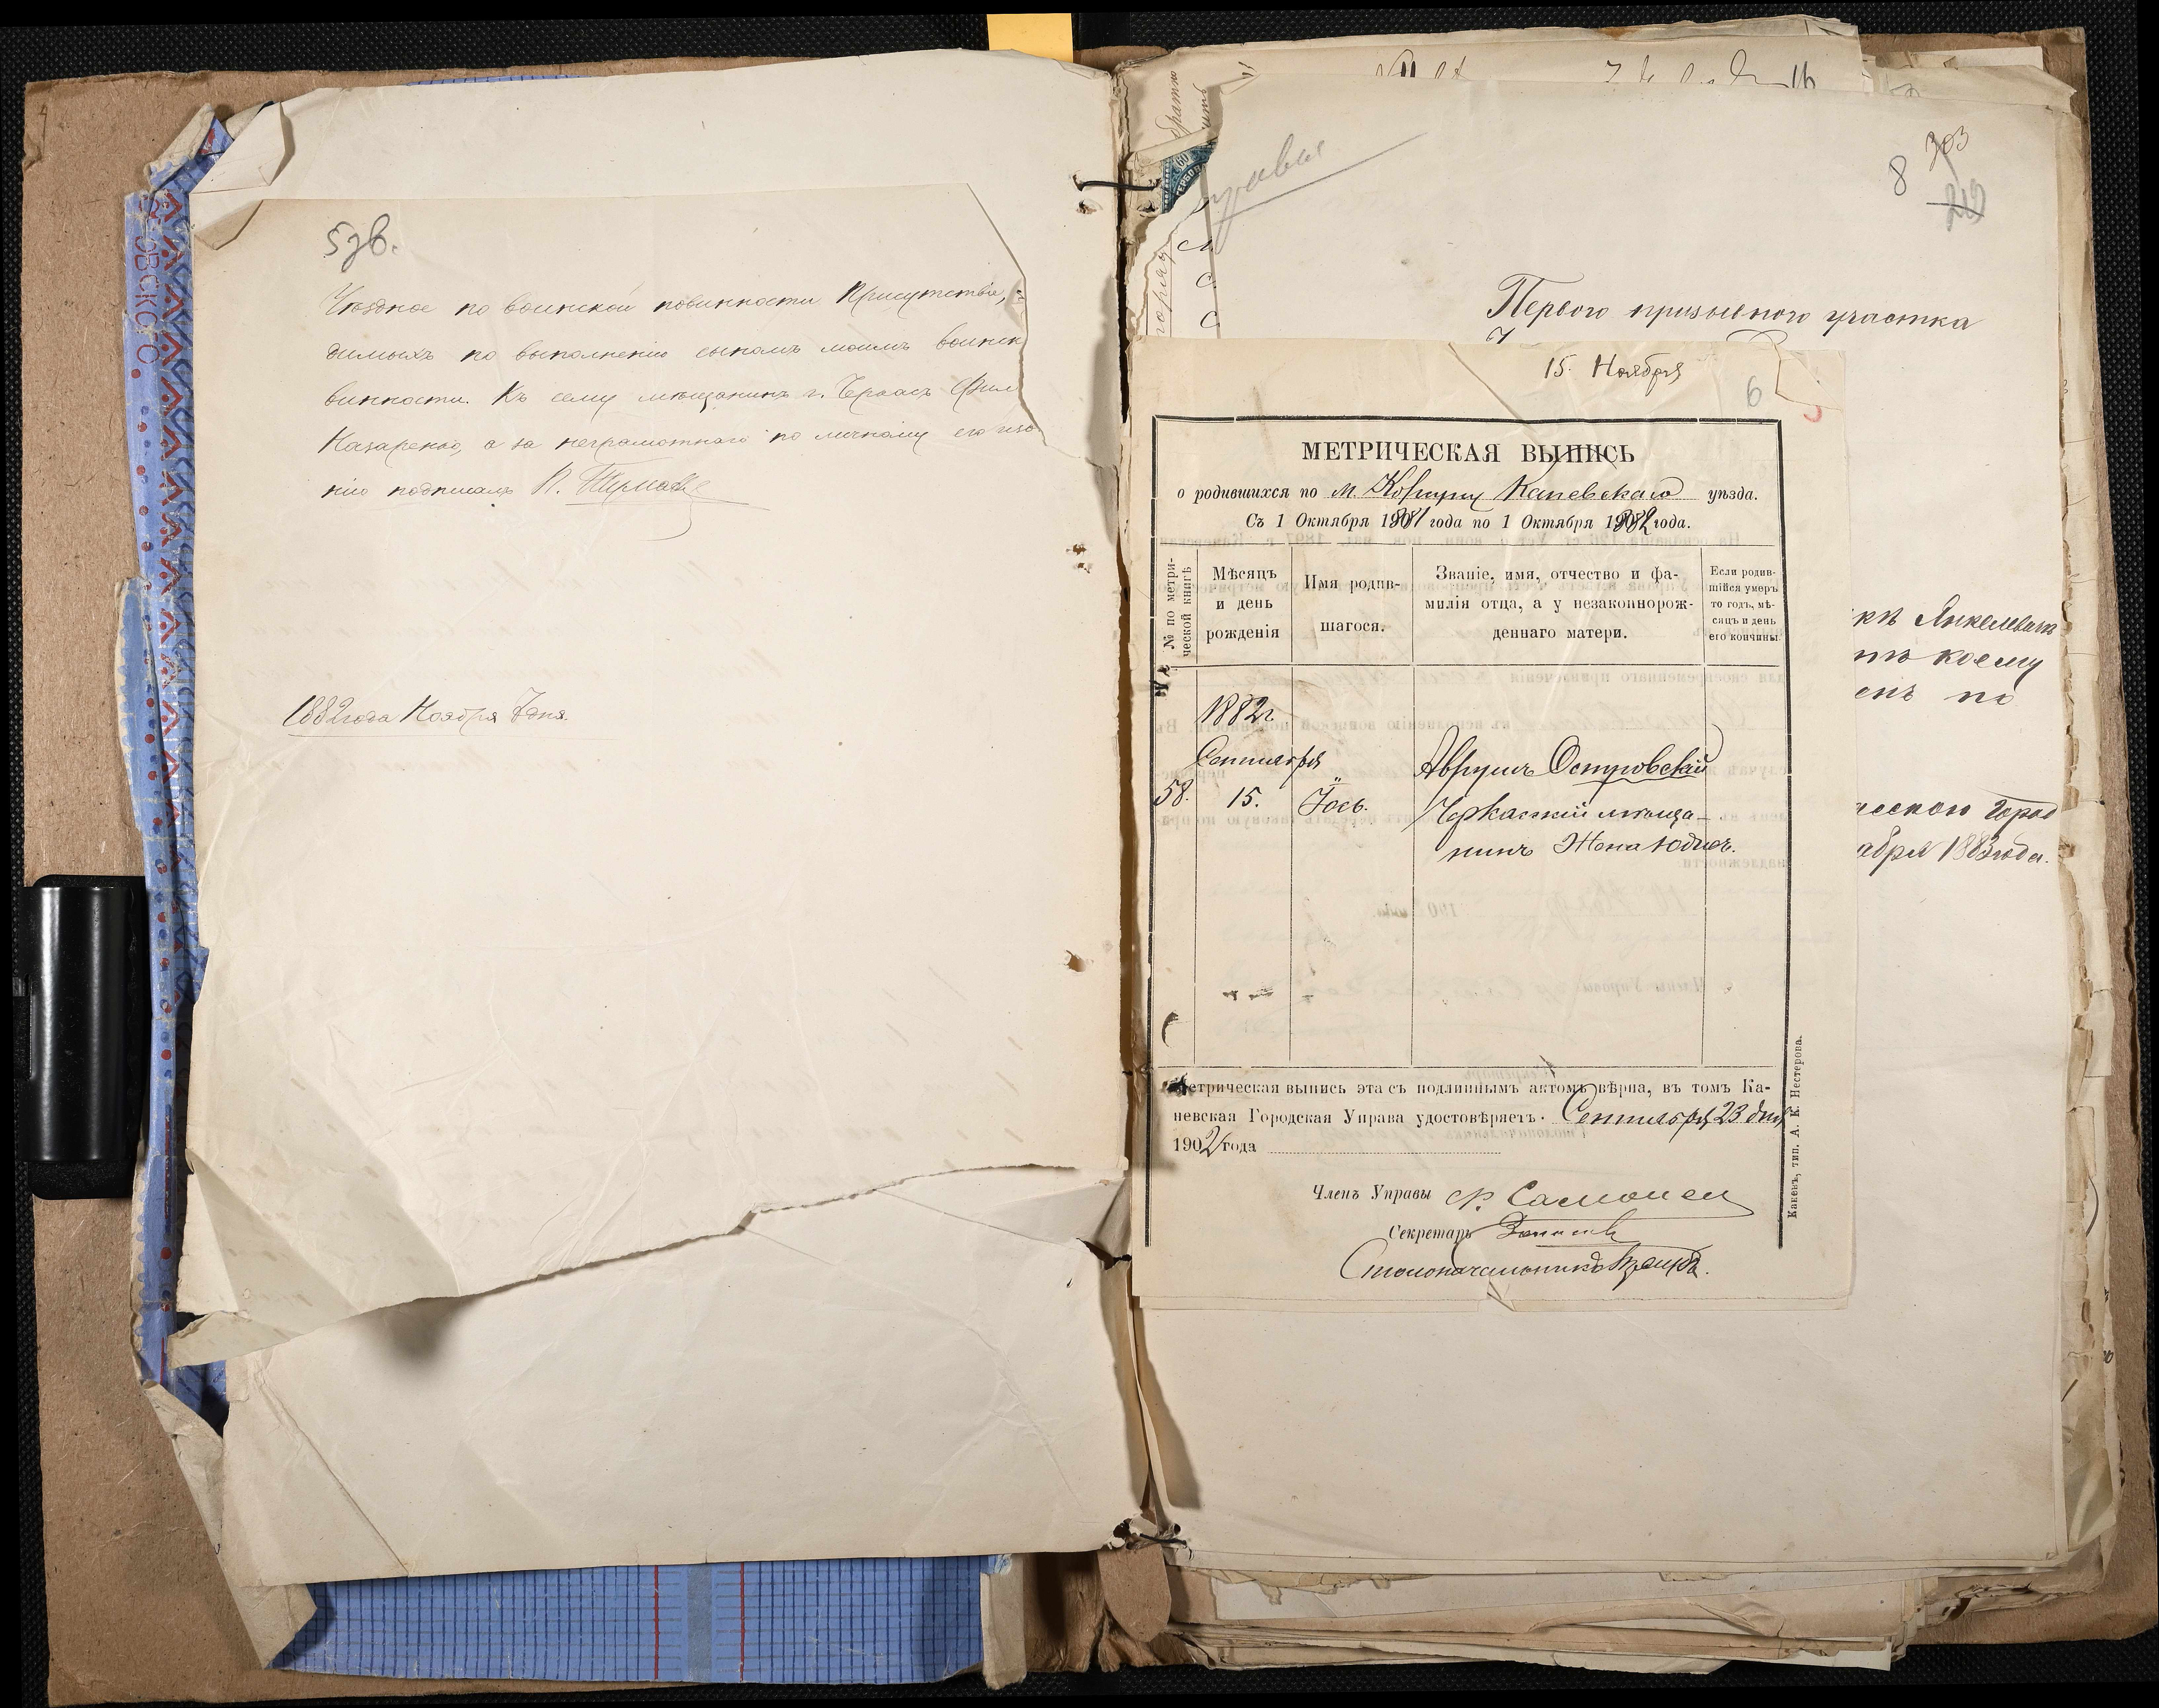 5зв.
Уѣздное по воинской повинности Присутствіе,
димыхъ по выполненію сыномъ моимъ воинск
винности. Къ сему мѣщанинъ г. Черкасъ Фил
Назаренко, а за неграмотнаго по личному его
нію подписалъ П.
1882 года Ноября 7 дня.
8 303
219
Перваго призывного участка
15. Ноября
6
МЕТРИЧЕСКАЯ ВЫПИСЬ
о родившихся по м. Корсуну Каневскаго уѣзда.
Съ 1 Октября 1881 года по 1 Октября 1882 года.
№ по метри-
ческой книгѣ
Мѣсяцъ
и день
рожденія
Имя родив-
шагося.
Званіе, имя, отчество и фа-
милія отца, а у незаконнорож-
деннаго матери.
Если родив-
шійся умеръ
то годъ, мѣ-
сяцъ и день
его кончины
1882 г.
Сентября
58. 15. Іось.
Аврумъ Островскій
Черкасскій мѣща-
нинъ Жена Юдись.
Метрическая выпись эта съ подлиннымъ актомъ вѣрна, въ томъ Ка-
невская Городская Управа удостовѣряетъ. Сентября 23 дня
1902 года
Членъ Управы
Секретарь
Столоначальникъ
Каневъ, тип. А. К. Нестерова.
кѣ Янкелевичѣ
коему
енъ по
ческою Город
абря 1883 года.